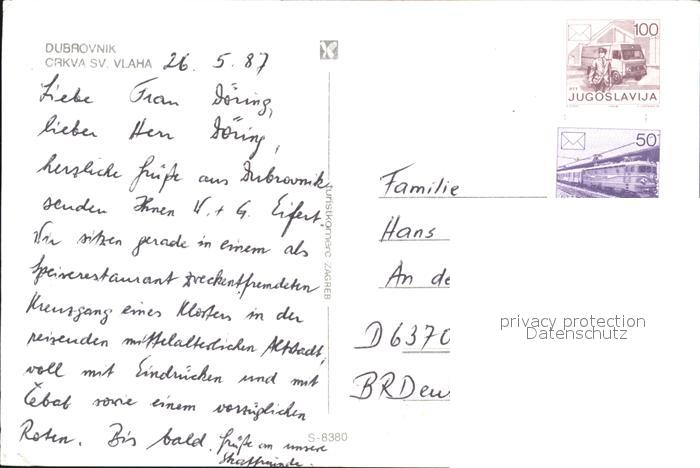 DUBROVNIK
CRKVA SV. VLAHA 26. 5. 87
Liebe Frau Döring,
lieber Herr Döring,
herzliche Grüße aus Dubrovnik
senden Ihnen W. + G. Eifert.
Wir sitzen gerade in einem als
Speiserestaurant zweckentfremdeten
Kreuzgang eines Klosters in der
reizenden mittelalterlichen Altstadt,
voll mit Eindrücken und mit
Čebab sowie einem vorzüglichen
Roten. Bis bald. Grüße an unsere
Skatfreunde.
S-8380
Turistkomerc ZAGREB
100
PTT
JUGOSLAVIJA
50
Familie
Hans
An de
D 6370
BRDeu
privacy protection
Datenschutz